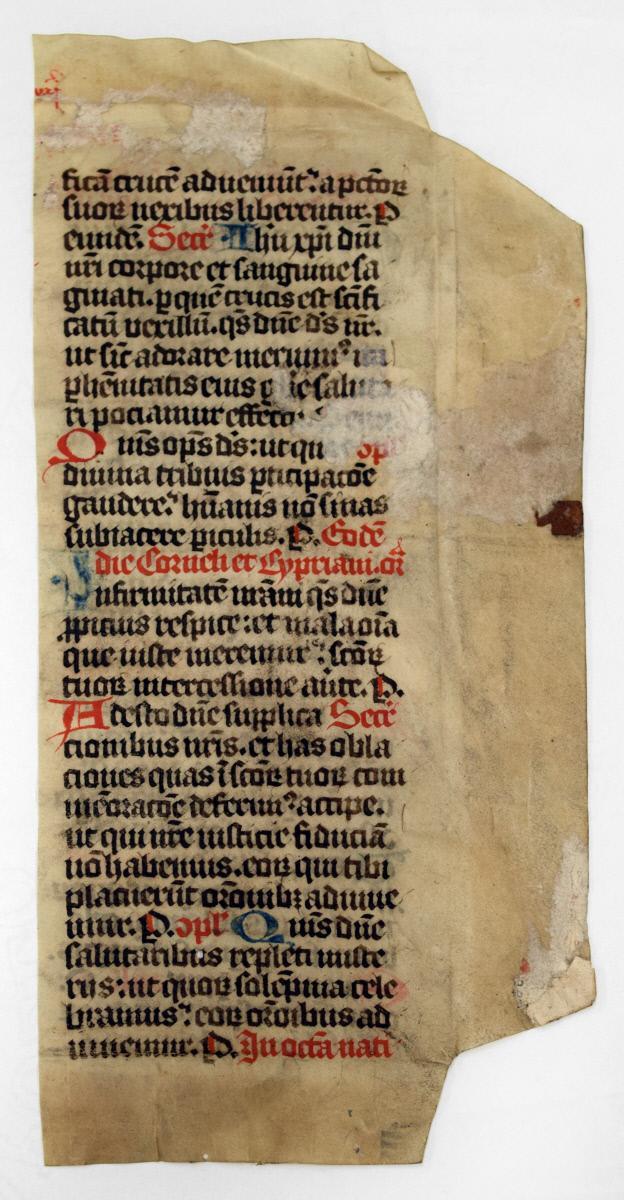 ficā crucē adueniūt: a pctōꝝ
suoꝝ nexibus liberentur. P
eundē. Secr̄ Ihū xp̄i dn̄i
nr̄i corpore et sanguine sa
ginati. ꝑ quē crucis est sc̄ifi
catū vexillū. qs̄ dn̄e ds̄ nr̄.
ut sic̄ adorare meruimꝰ
ꝑhēnitatis eius salu
ri pociamur effectu
Quis op̄s ds̄: ut qui opl̄
diuina tribuis ꝑticipatōe
gaudere: hūanis nō sinas
subiacere ꝑiculis. P. Eodē
die Cornelii et Cypriani. or̄
Infirmitatē nr̄am qs̄ dn̄e
ꝓpicius respice: et mala oīa
que iuste meremur: sc̄oꝝ
tuoꝝ intercessione au̇te. P.
Adesto dn̄e supplica Secr̄
cionibus nr̄is. et has obla
ciones quas ī sc̄oꝝ tuoꝝ com
mēoratōe deferimꝰ accipe.
ut qui nr̄e iusticie fiduciā
nō habemus. eoꝝ qui tibi
placuerūt or̄onibꝫ adiuue
mur. P. opl̄ Quis dn̄e
salutaribus repleti miste
riis: ut quoꝝ solēpnia cele
bramus: eoꝝ or̄oibus ad
iuuemur. P. In octā nati